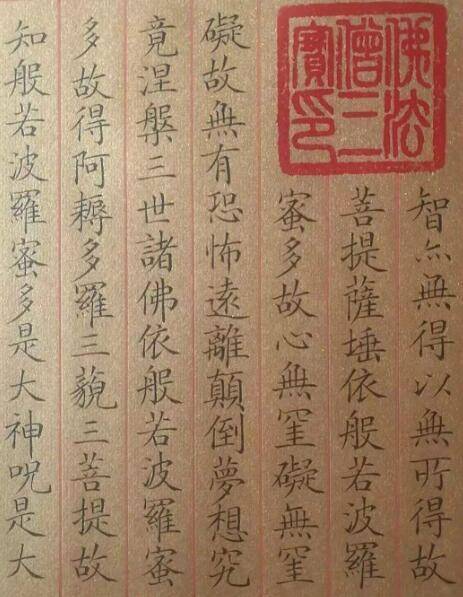 佛法
僧三
寶印
智亦無得以無所得故
菩提薩埵依般若波羅
蜜多故心無罣礙無罣
礙故無有恐怖遠離顛倒夢想究
竟涅槃三世諸佛依般若波羅蜜
多故得阿耨多羅三藐三菩提故
知般若波羅蜜多是大神呪是大